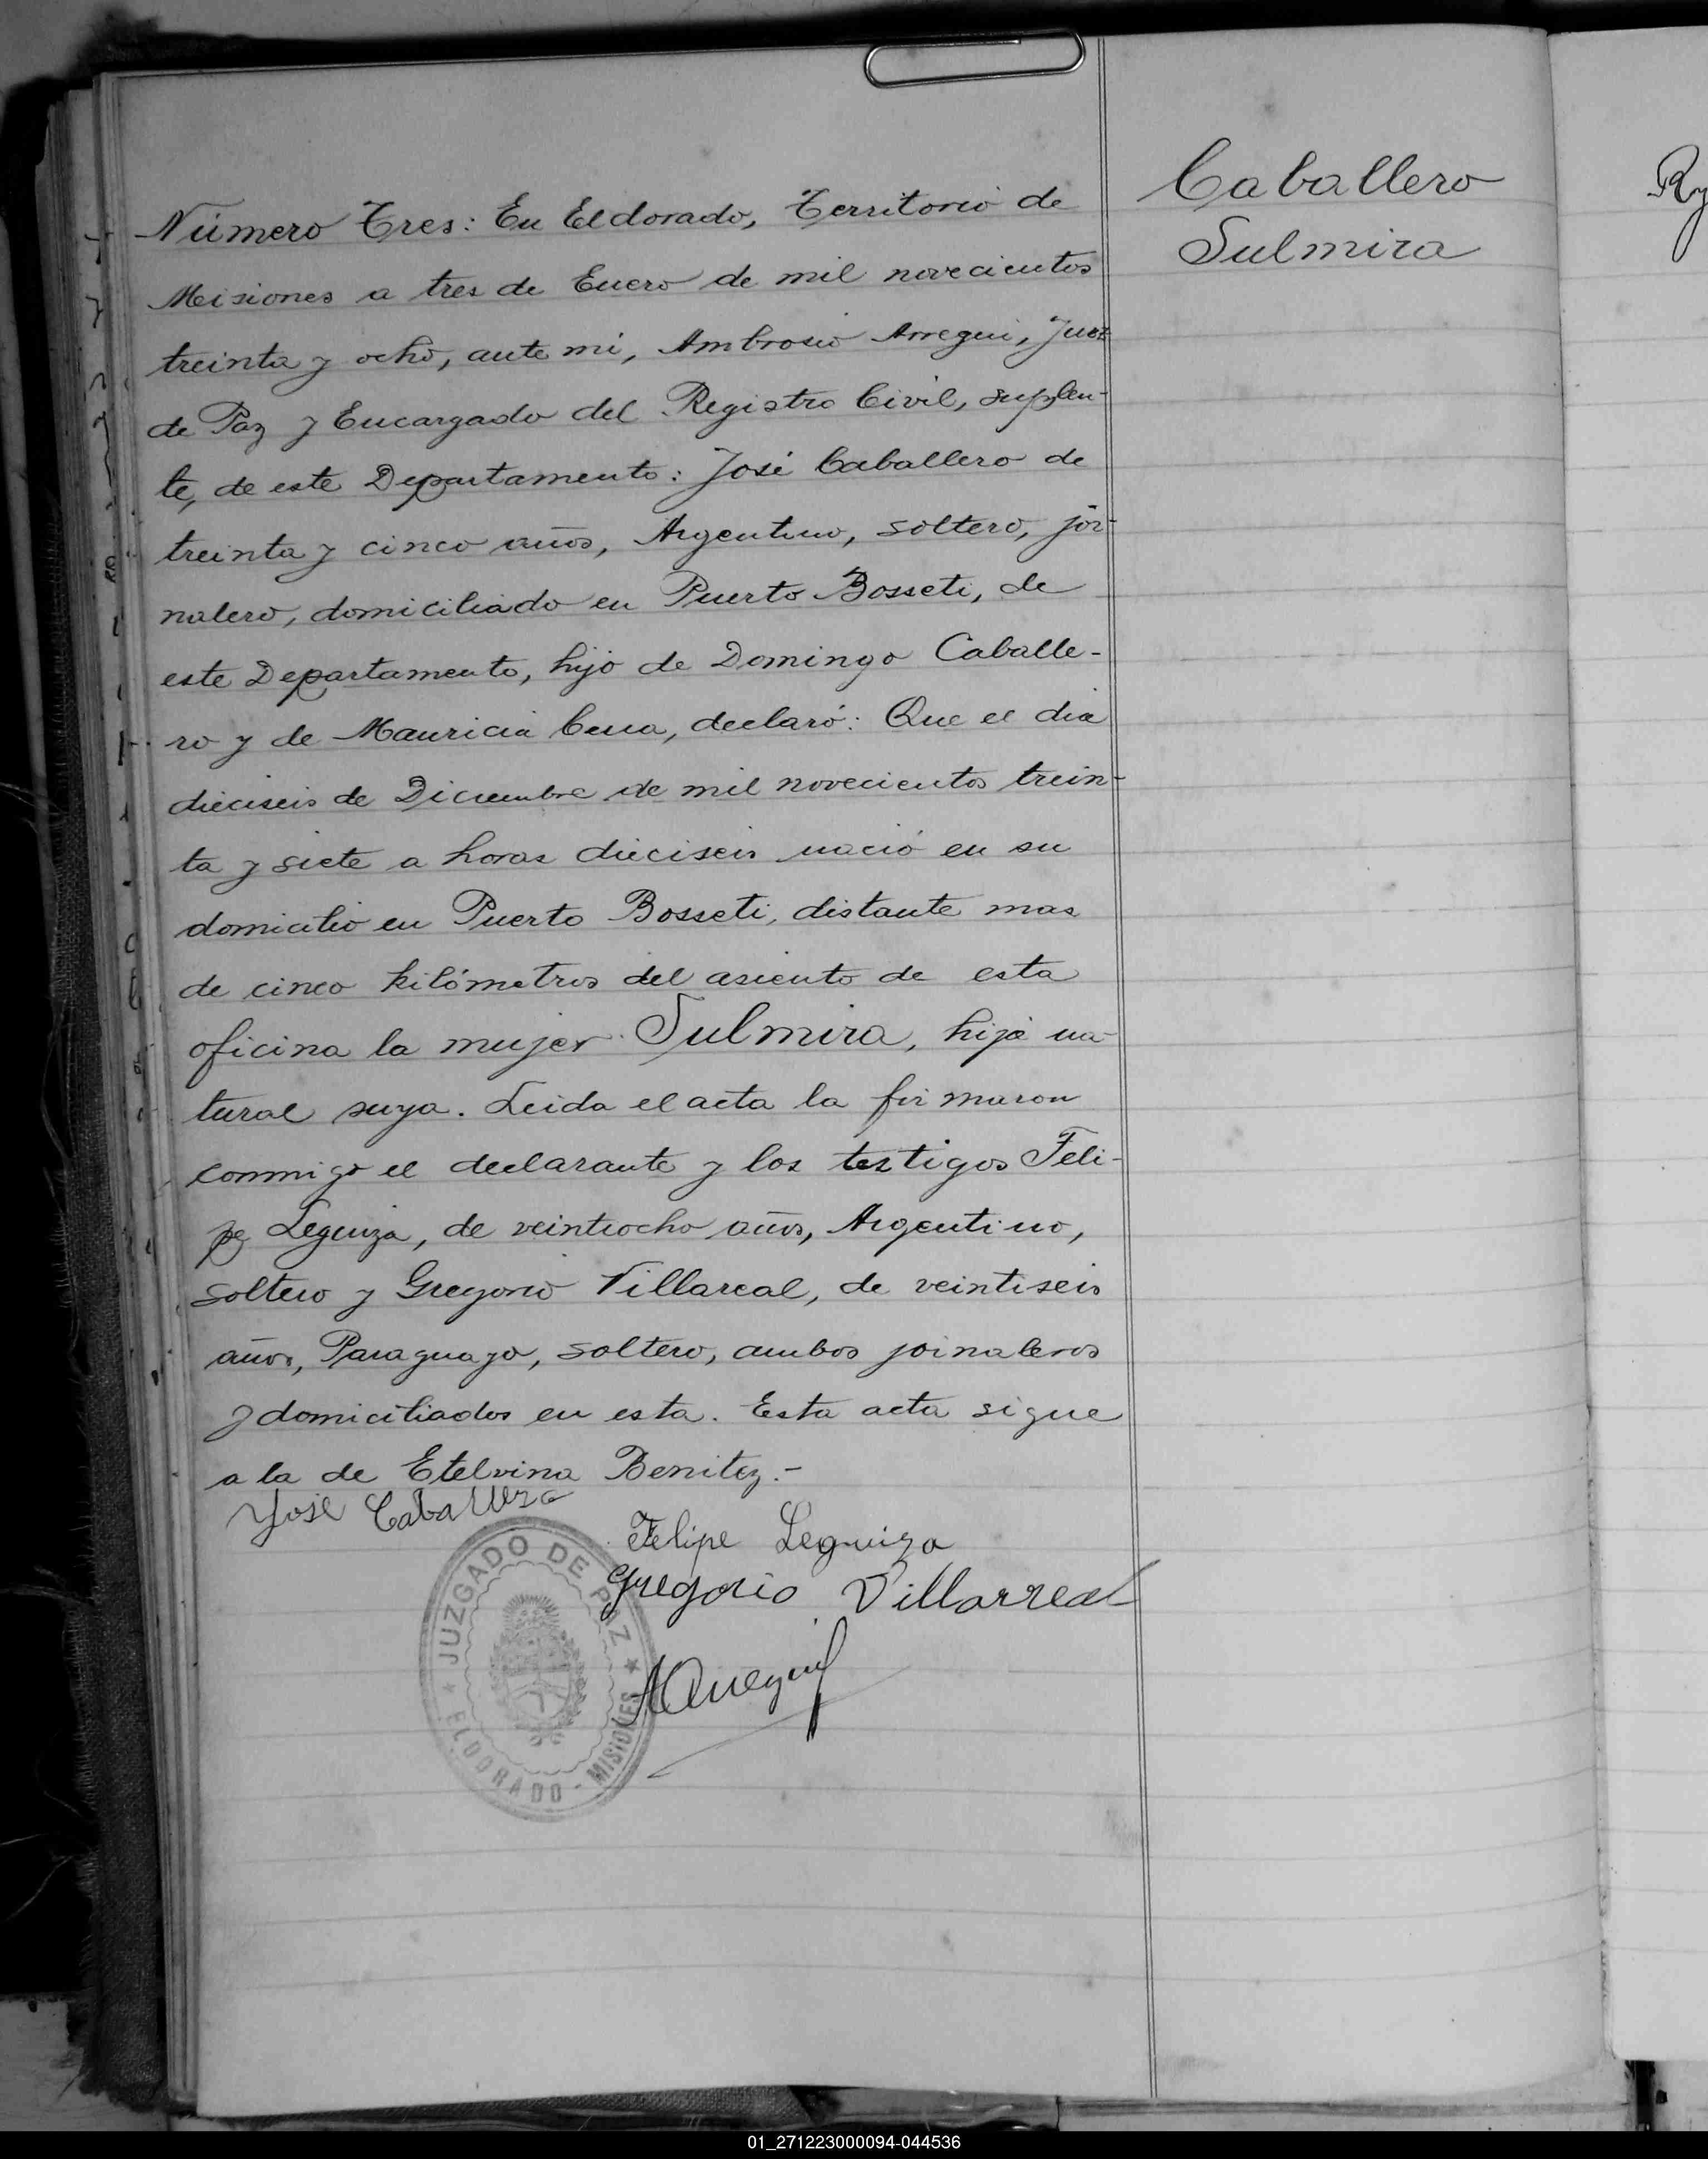 Caballero
Sulmira
Número Tres: En Eldorado, Territorio de
Misiones a tres de Enero de mil novecientos
treinta y ocho, ante mi, Ambrosio Arregui, Juez
de Paz y Encargado del Registro Civil, suplen-
te, de este Departamento: José Caballero de
treinta y cinco años, Argentino, soltero, jor-
nalero, domiciliado en Puerto Bosseti, de
este Departamento, hijo de Domingo Caballe-
ro y de Mauricia Cena, declaró: Que el dia
dieciseis de Diciembre de mil novecientos trein-
ta y siete a horas dieciseis nació en su
domicilio en Puerto Bosseti, distante mas
de cinco kilómetros del asiento de esta
oficina la mujer Sulmira, hija na-
tural suya. Leida el acta la firmaron
conmigo el declarante y los testigos Feli-
pe Leguiza, de veintiocho años, Argentino,
soltero y Gregorio Villareal, de veintiseis
años, Paraguayo, soltero, ambos jornaleros
y domiciliados en esta. Esta acta sigue
a la de Etelvina Benitez.-
José Caballero
Felipe Leguiza
Gregorio Villarreal
AArregui
JUZGADO DE PAZ
ELDORADO - MISIONES
01_271223000094-044536